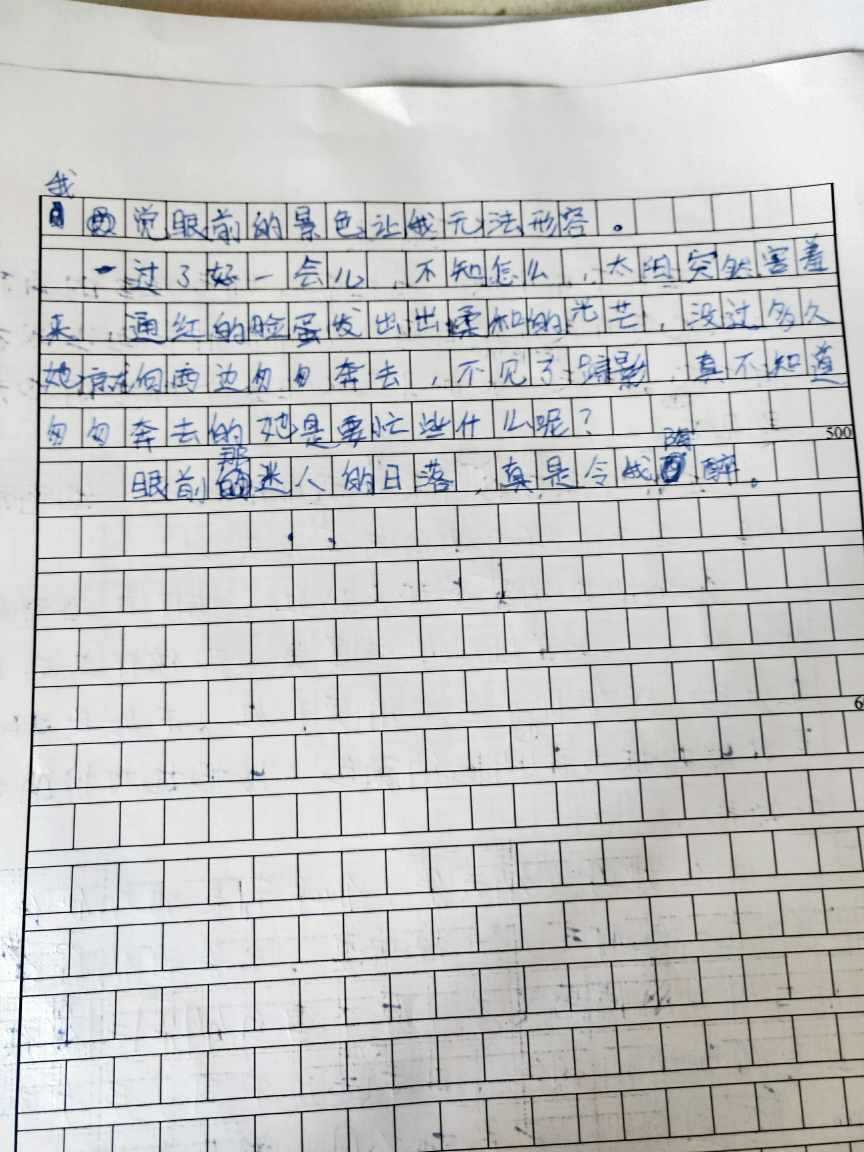 我
觉眼前的景色让我无法形容。
过了好一会儿，不知怎么，太阳突然害羞
来，通红的脸蛋发出出柔和的光芒，没过多久
她掠向西边匆匆奔去，不见了踪影，真不知道
匆匆奔去的她是要忙些什么呢？
500
那 陶
眼前迷人的日落，真是令我醉。
6